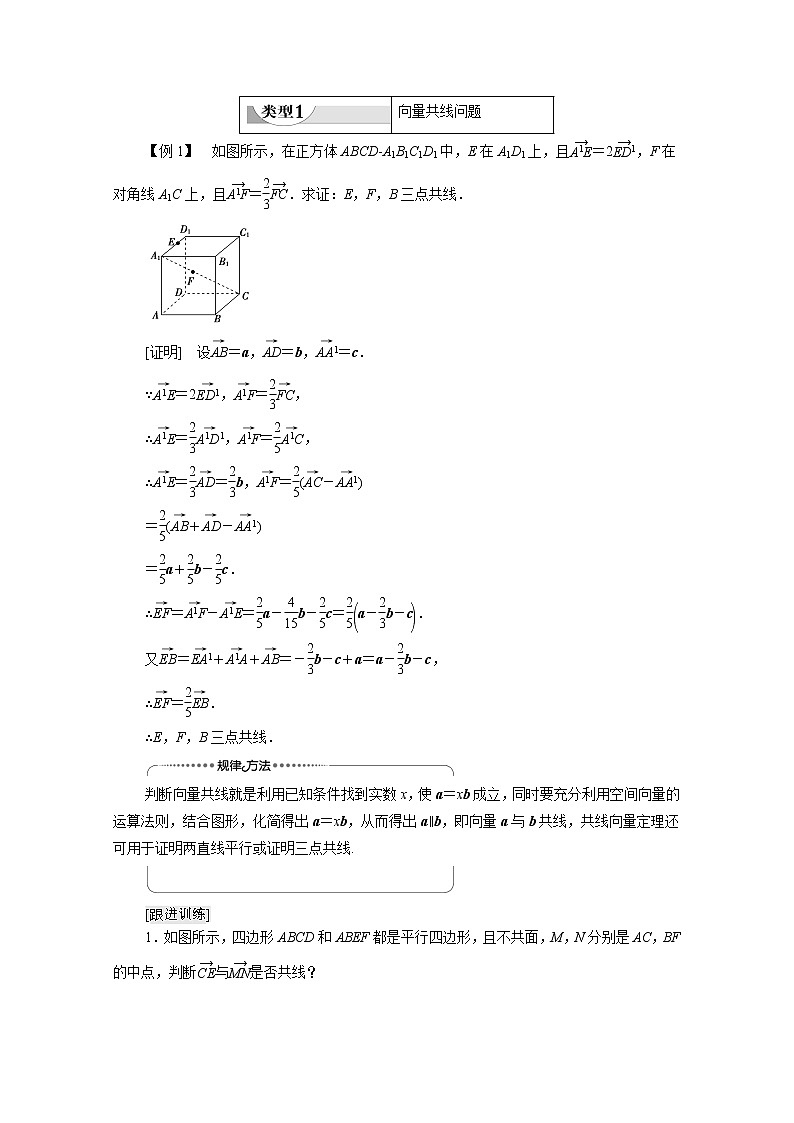 类型1 向量共线问题
【例1】 如图所示，在正方体ABCD-A₁B₁C₁D₁中，E在A₁D₁上，且$\overrightarrow{A_1E}$＝2$\overrightarrow{ED_1}$，F在
对角线A₁C上，且$\overrightarrow{A_1F}$＝$\frac{2}{3}\overrightarrow{FC}$．求证：E，F，B三点共线．
D₁ C₁
E
A₁ B₁
F
D C
A B
[证明] 设$\overrightarrow{AB}$＝a，$\overrightarrow{AD}$＝b，$\overrightarrow{AA_1}$＝c．
∵$\overrightarrow{A_1E}$＝2$\overrightarrow{ED_1}$，$\overrightarrow{A_1F}$＝$\frac{2}{3}\overrightarrow{FC}$，
∴$\overrightarrow{A_1E}$＝$\frac{2}{3}\overrightarrow{A_1D_1}$，$\overrightarrow{A_1F}$＝$\frac{2}{5}\overrightarrow{A_1C}$，
∴$\overrightarrow{A_1E}$＝$\frac{2}{3}\overrightarrow{AD}$＝$\frac{2}{3}$b，$\overrightarrow{A_1F}$＝$\frac{2}{5}$($\overrightarrow{AC}$－$\overrightarrow{AA_1}$)
＝$\frac{2}{5}$($\overrightarrow{AB}$＋$\overrightarrow{AD}$－$\overrightarrow{AA_1}$)
＝$\frac{2}{5}$a＋$\frac{2}{5}$b－$\frac{2}{5}$c．
∴$\overrightarrow{EF}$＝$\overrightarrow{A_1F}$－$\overrightarrow{A_1E}$＝$\frac{2}{5}$a－$\frac{4}{15}$b－$\frac{2}{5}$c＝$\frac{2}{5}$(a－$\frac{2}{3}$b－c)．
又$\overrightarrow{EB}$＝$\overrightarrow{EA_1}$＋$\overrightarrow{A_1A}$＋$\overrightarrow{AB}$＝－$\frac{2}{3}$b－c＋a＝a－$\frac{2}{3}$b－c，
∴$\overrightarrow{EF}$＝$\frac{2}{5}\overrightarrow{EB}$．
∴E，F，B三点共线．
规律方法
判断向量共线就是利用已知条件找到实数x，使a＝xb成立，同时要充分利用空间向量的
运算法则，结合图形，化简得出a＝xb，从而得出a∥b，即向量a与b共线，共线向量定理还
可用于证明两直线平行或证明三点共线.
[跟进训练]
1．如图所示，四边形ABCD和ABEF都是平行四边形，且不共面，M，N分别是AC，BF
的中点，判断$\overrightarrow{CE}$与$\overrightarrow{MN}$是否共线？